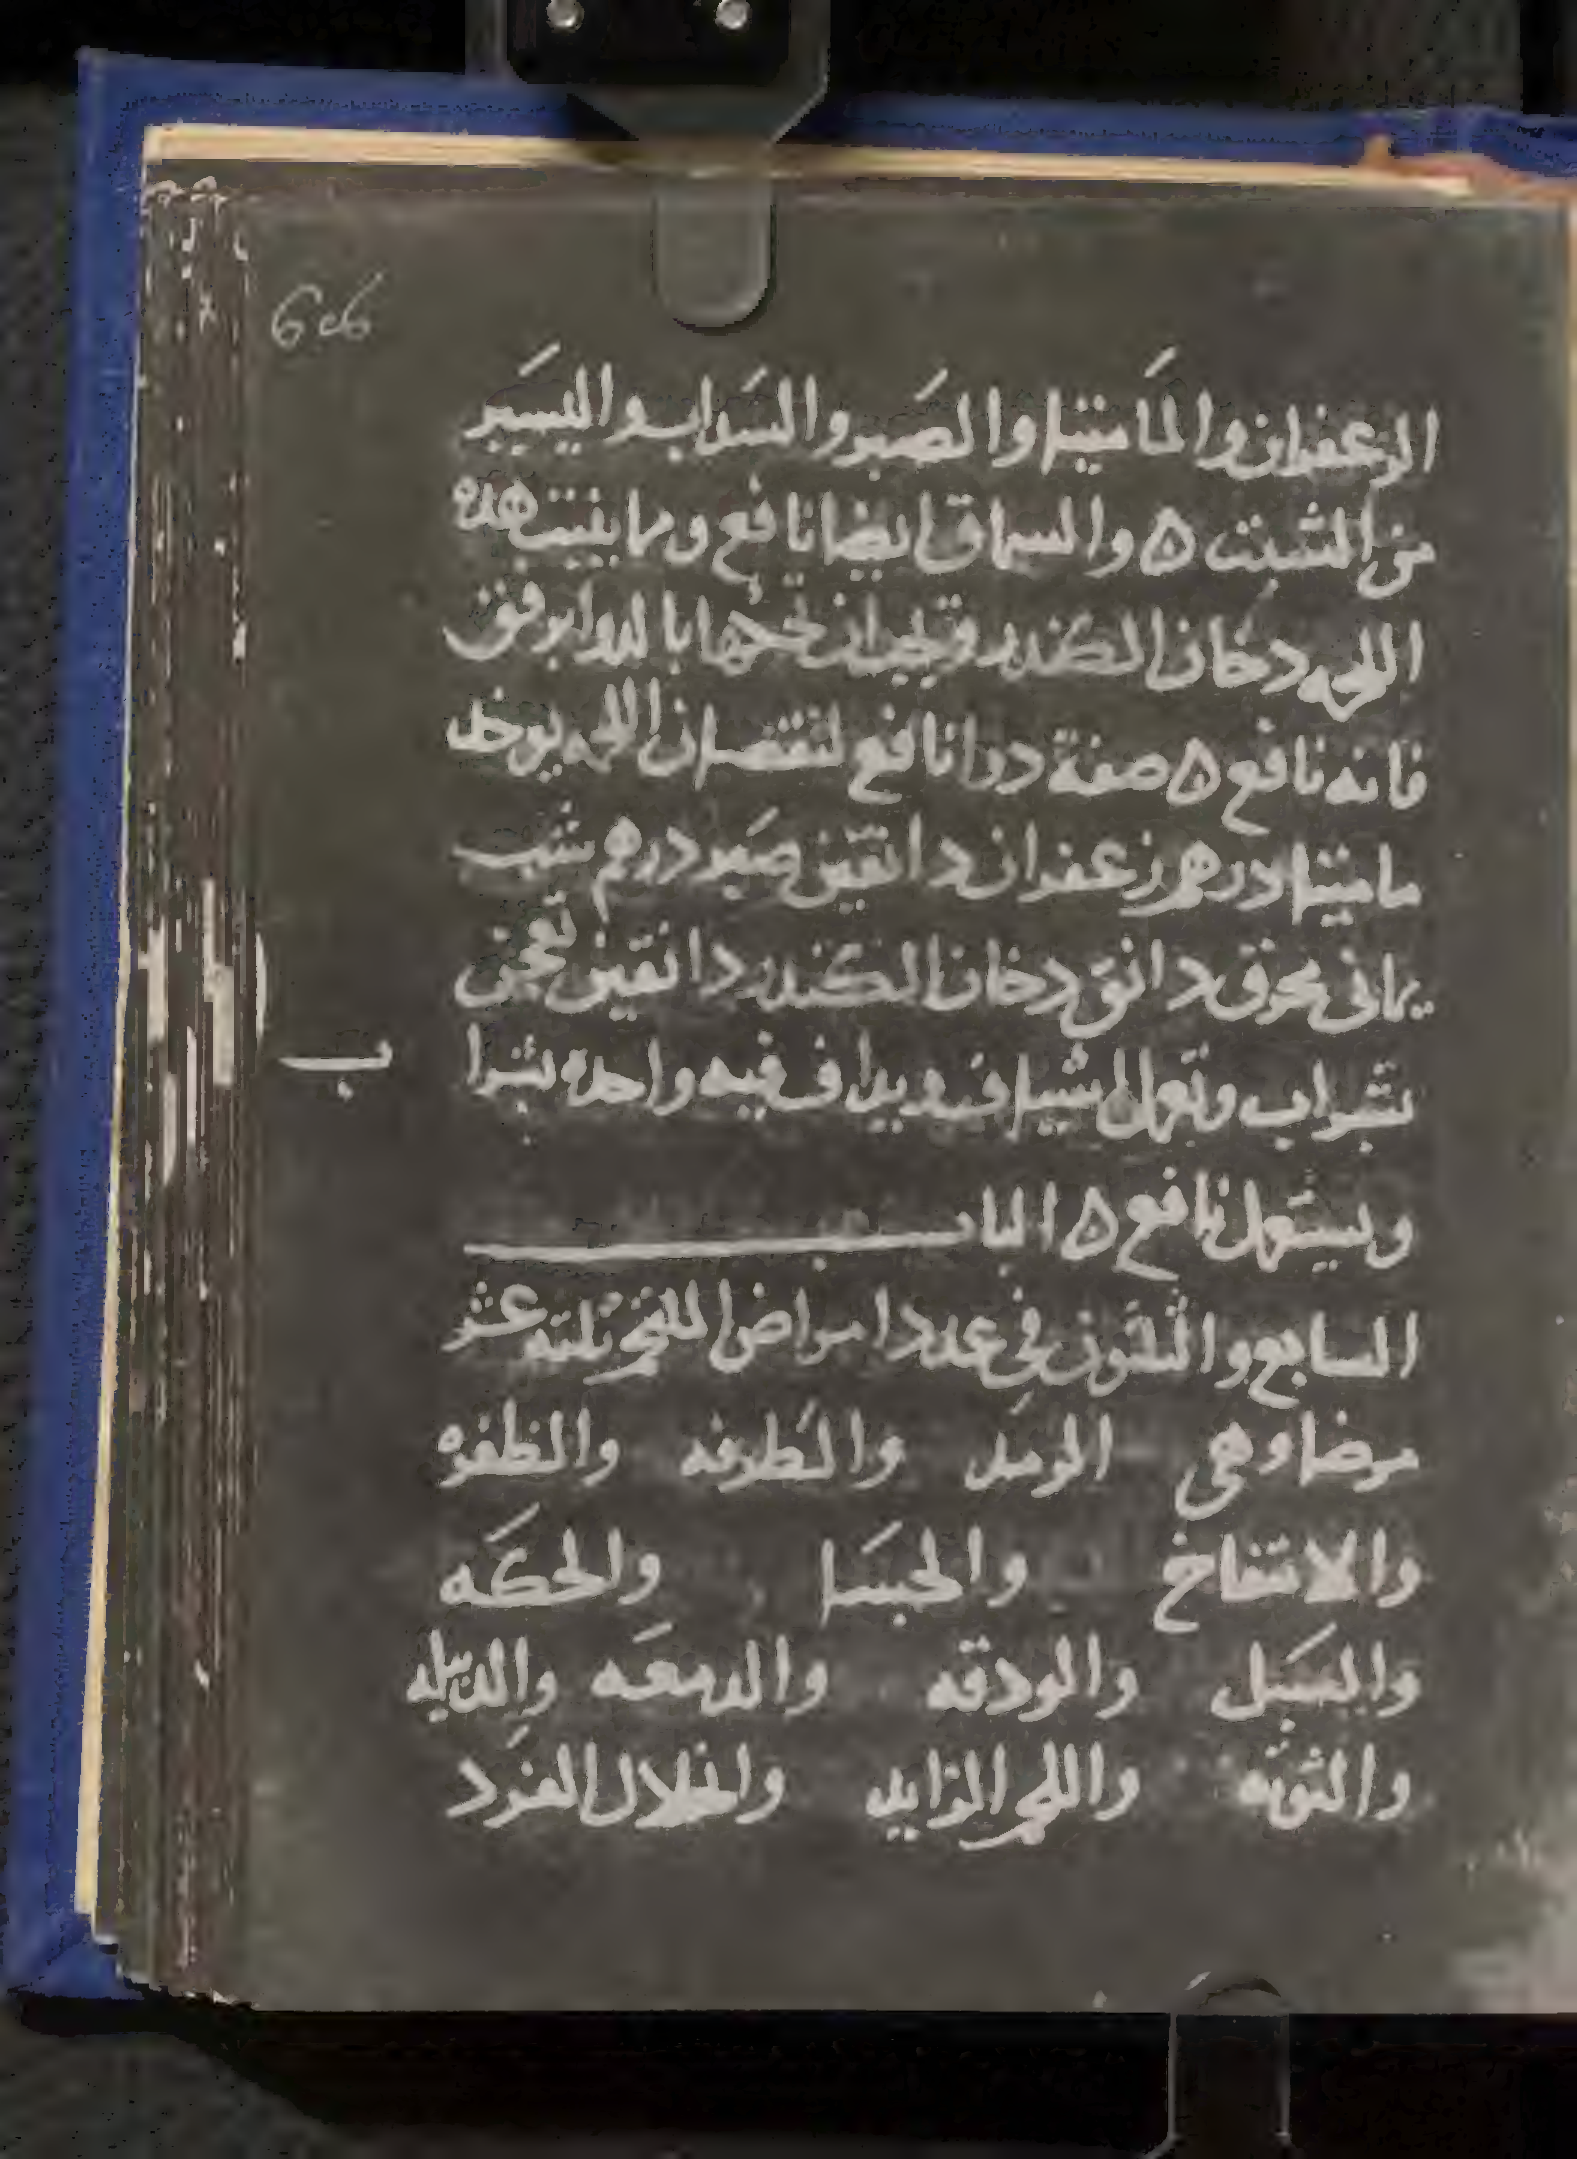 606
الزعفران والماميثا والصبر والشراب واليسير
من الشبت ٥ والسماق ايضا نافع ومما ينبت هذه
اللحمه دخان الكندر وتجب ان تحكها بالدوا برفق
فانه نافع ٥ صفة دوا نافع لنقصان اللحمه يوخذ
ماميثا درهم زعفران دانقين صبر درهم شب
يماني محرق دانق دخان الكندر دانقين تعجن
بشراب وتعمل شياف ويداف فيه واحده بشرا
ب
ويستعمل نافع ٥ الباب
السابع والثلثون في عدد امراض الملتحم ثلثة عشر
مرضا وهي الرمد والطرفه والظفره
والانتفاخ والجسا والحكه
والسبل والودقه والدمعه والدبيله
والتوثه واللحم الزايد وانحلال الفرد